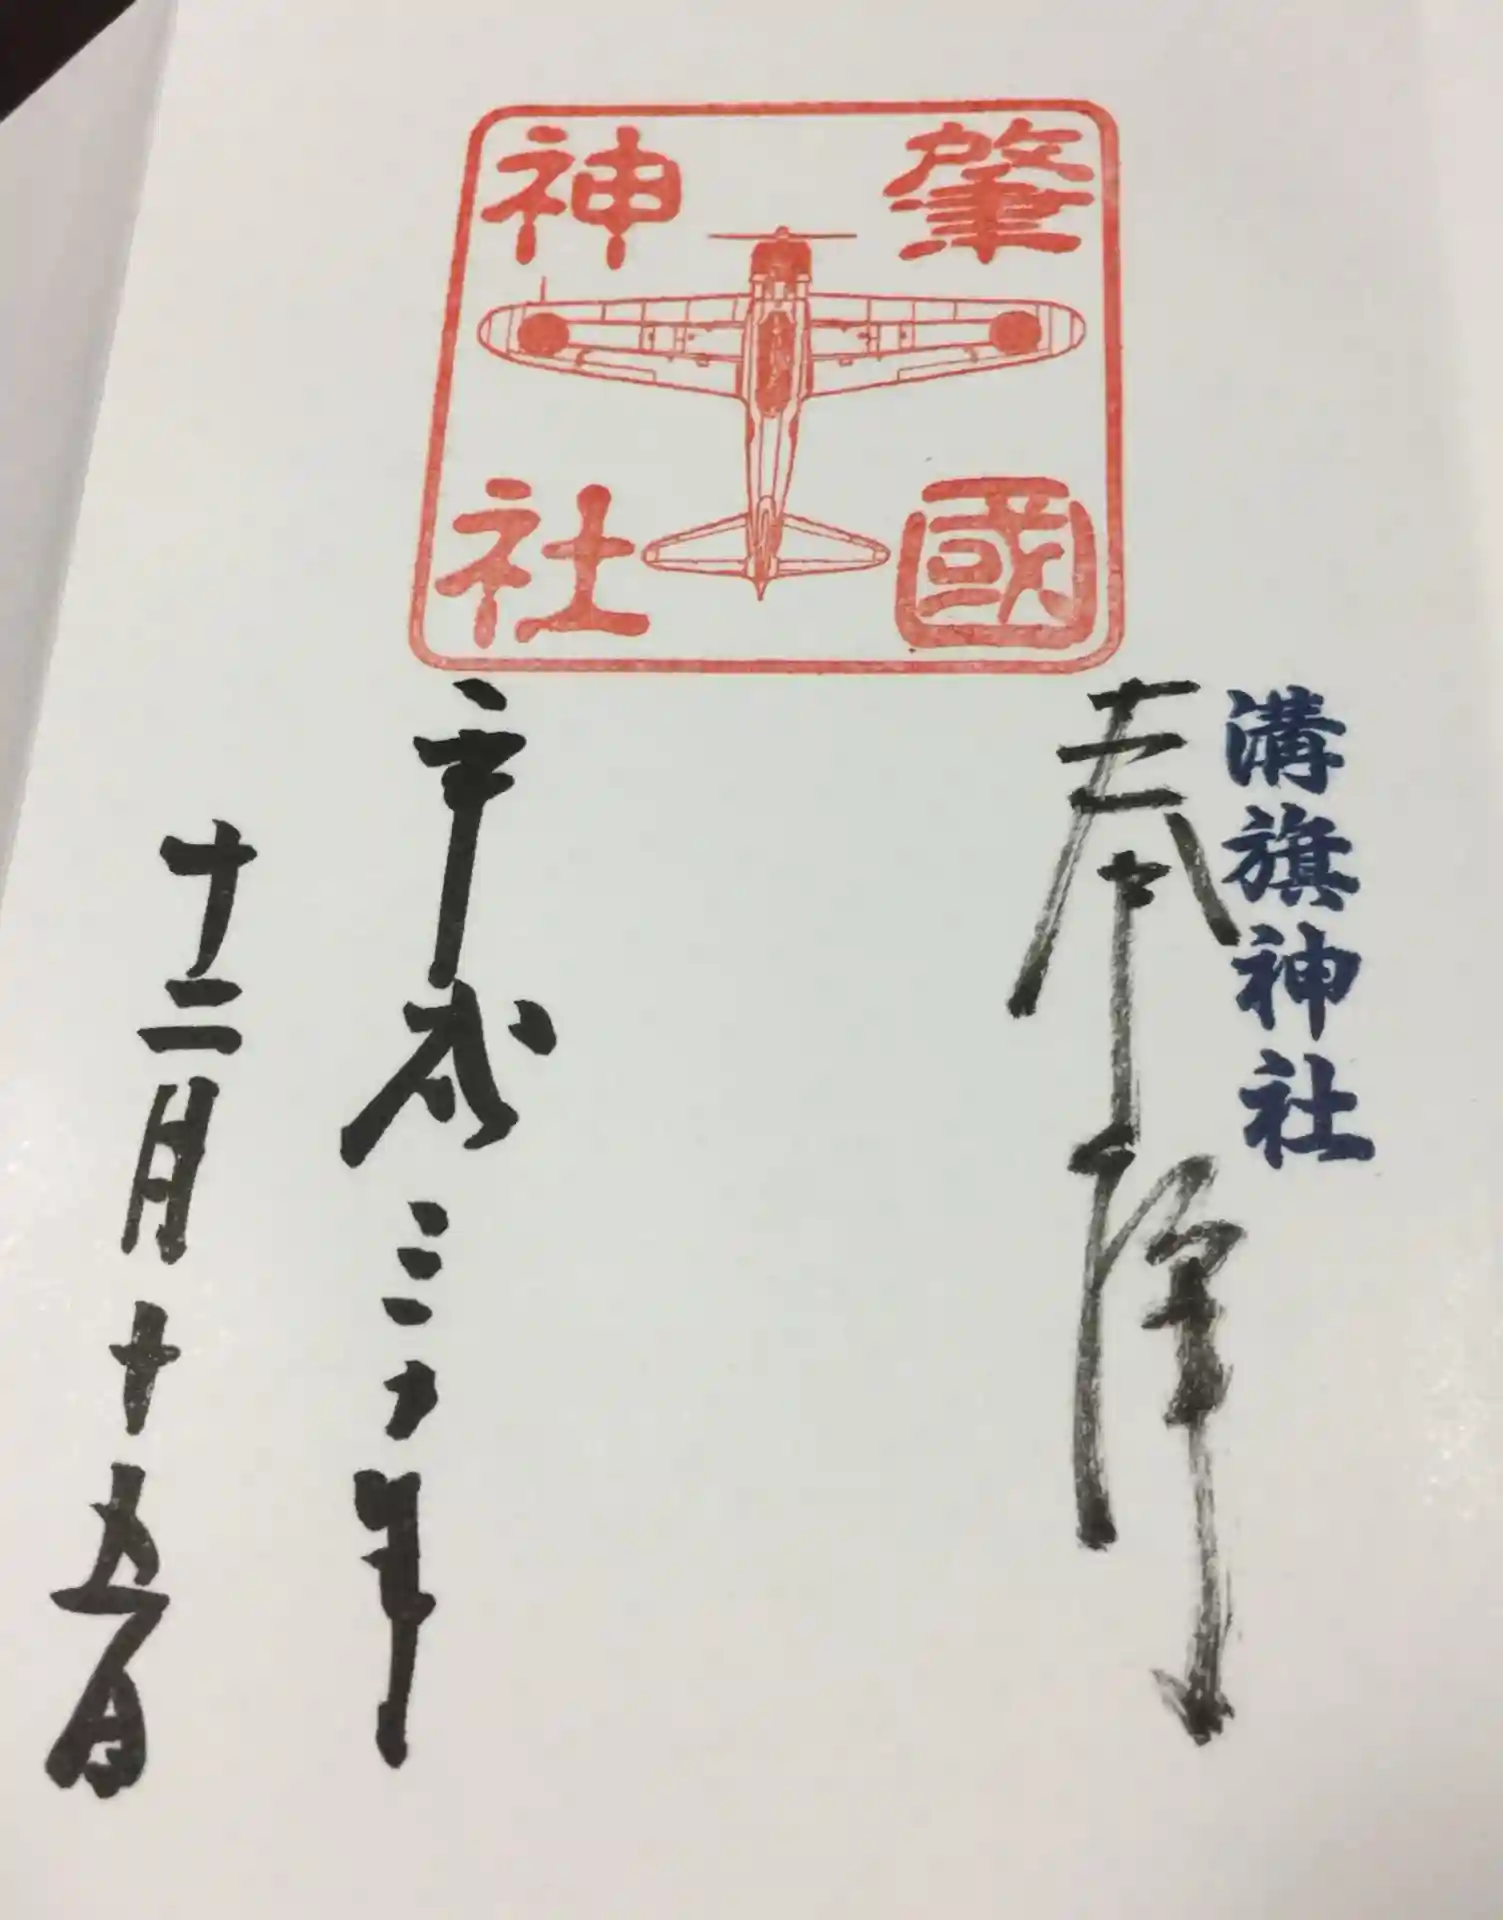 肇國
神社
溝旗神社
奉拝
平成三十年
十二月十五日